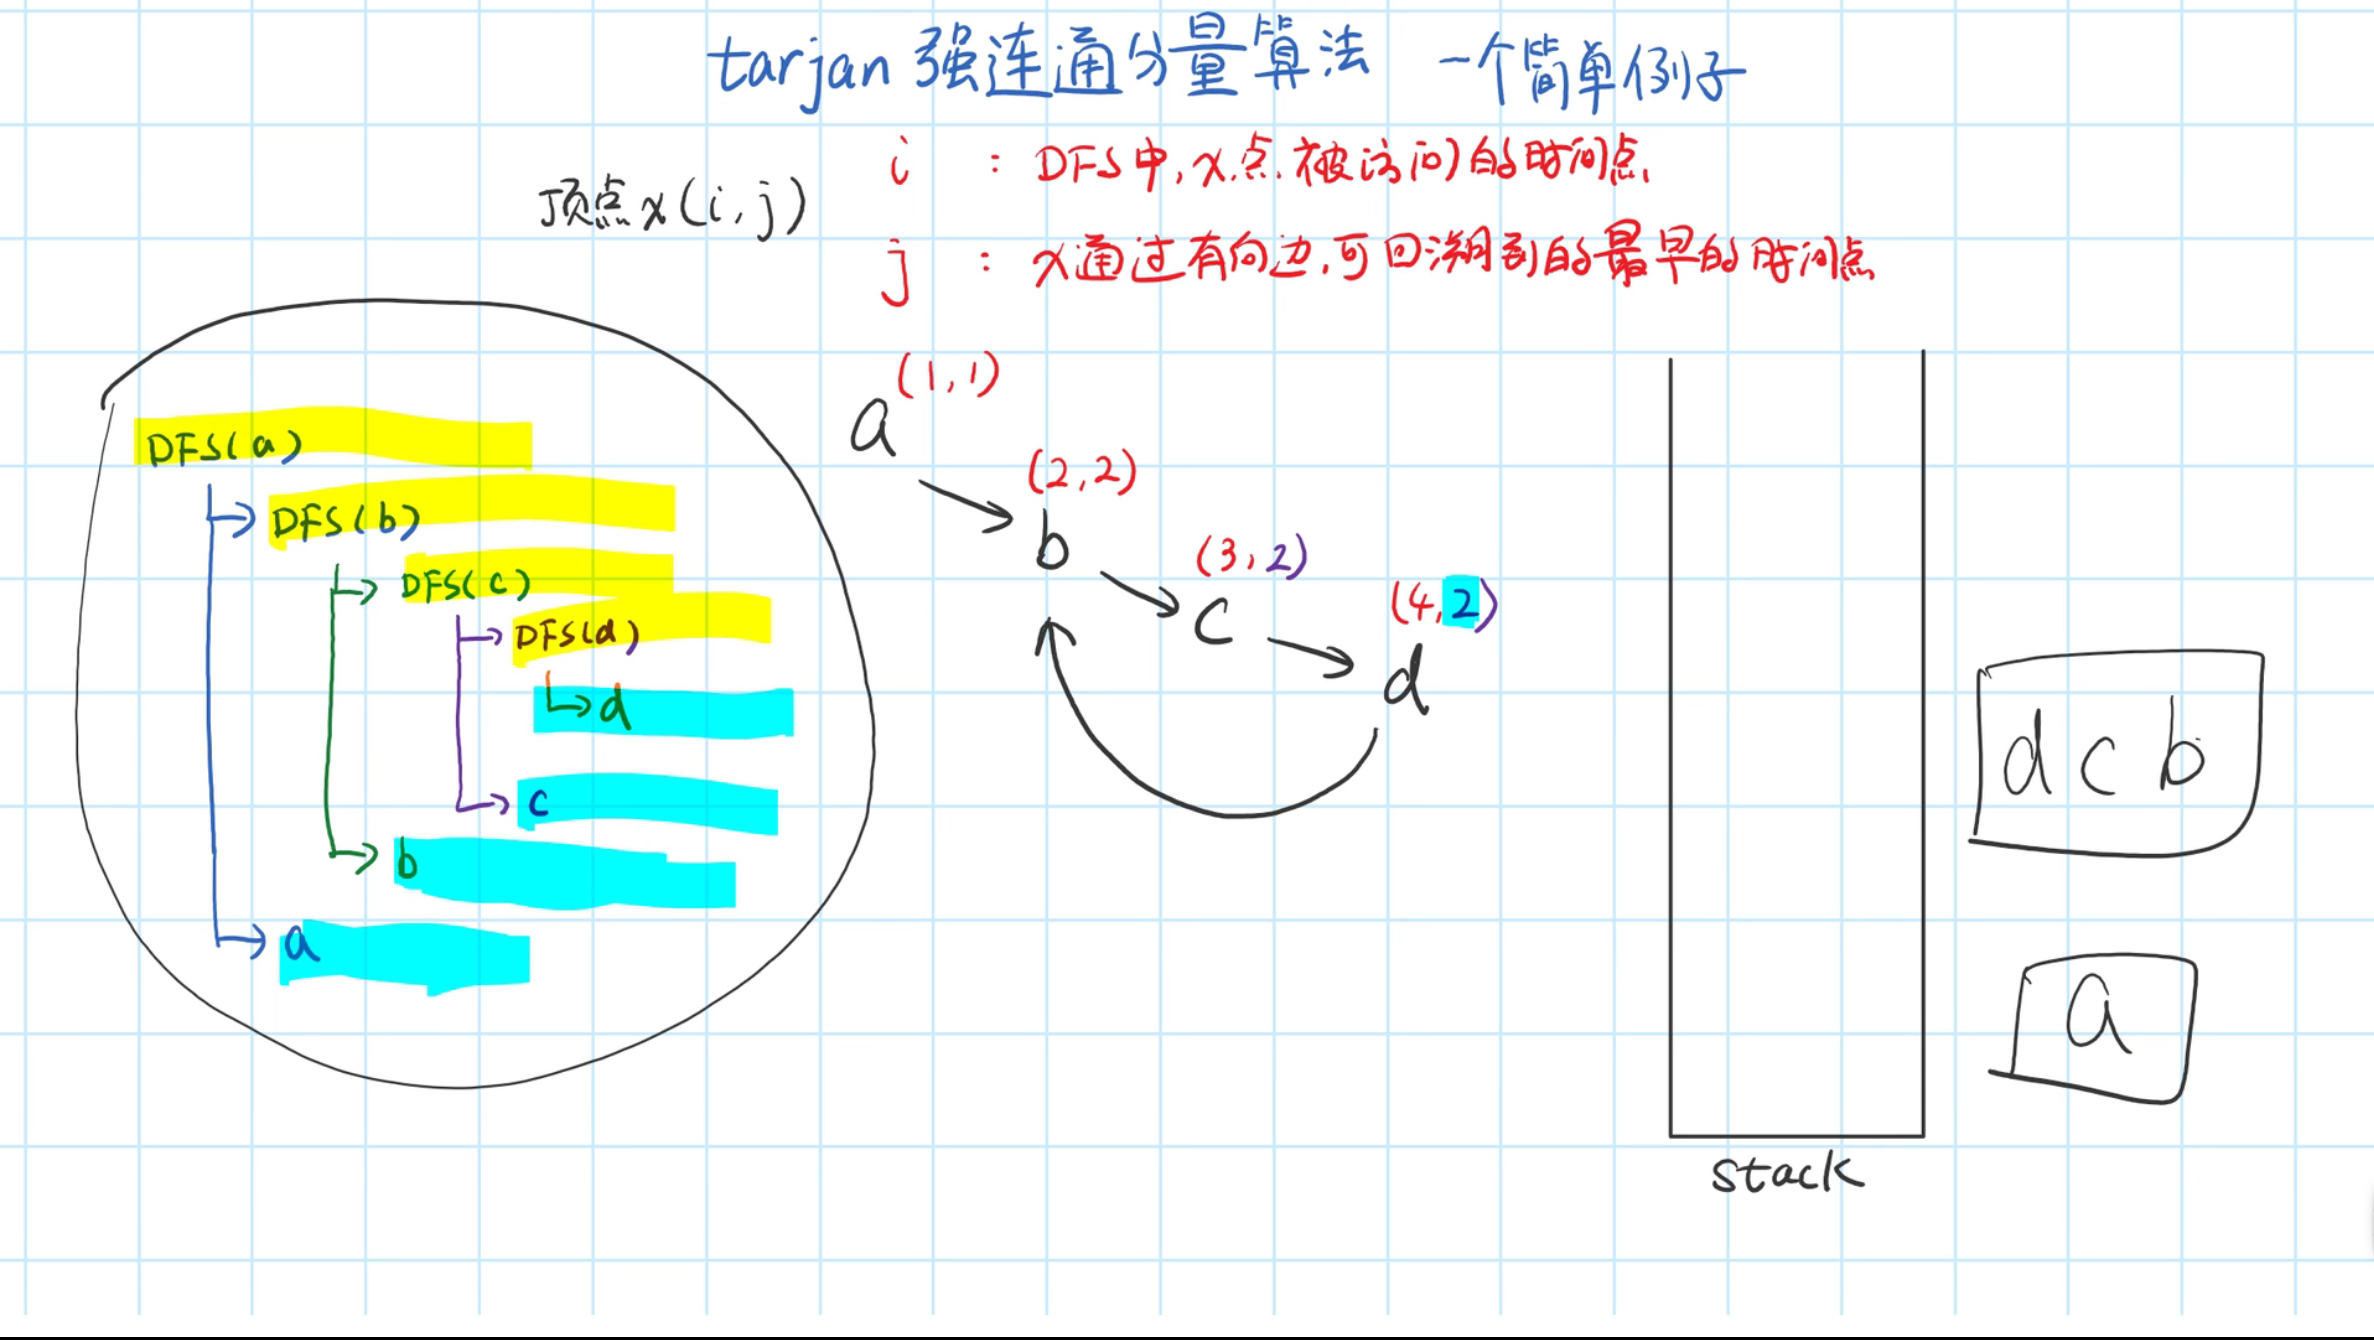 tarjan 强连通分量算法 一个简单例子
顶点x(i,j)
i : DFS中,x点被访问的时间点
j : x通过有向边,可回溯到的最早的时间点
DFS(a)
DFS(b)
DFS(c)
DFS(d)
d
c
b
a
(1,1)
a
(2,2)
b
(3,2)
c
(4,2)
d
stack
d c b
a